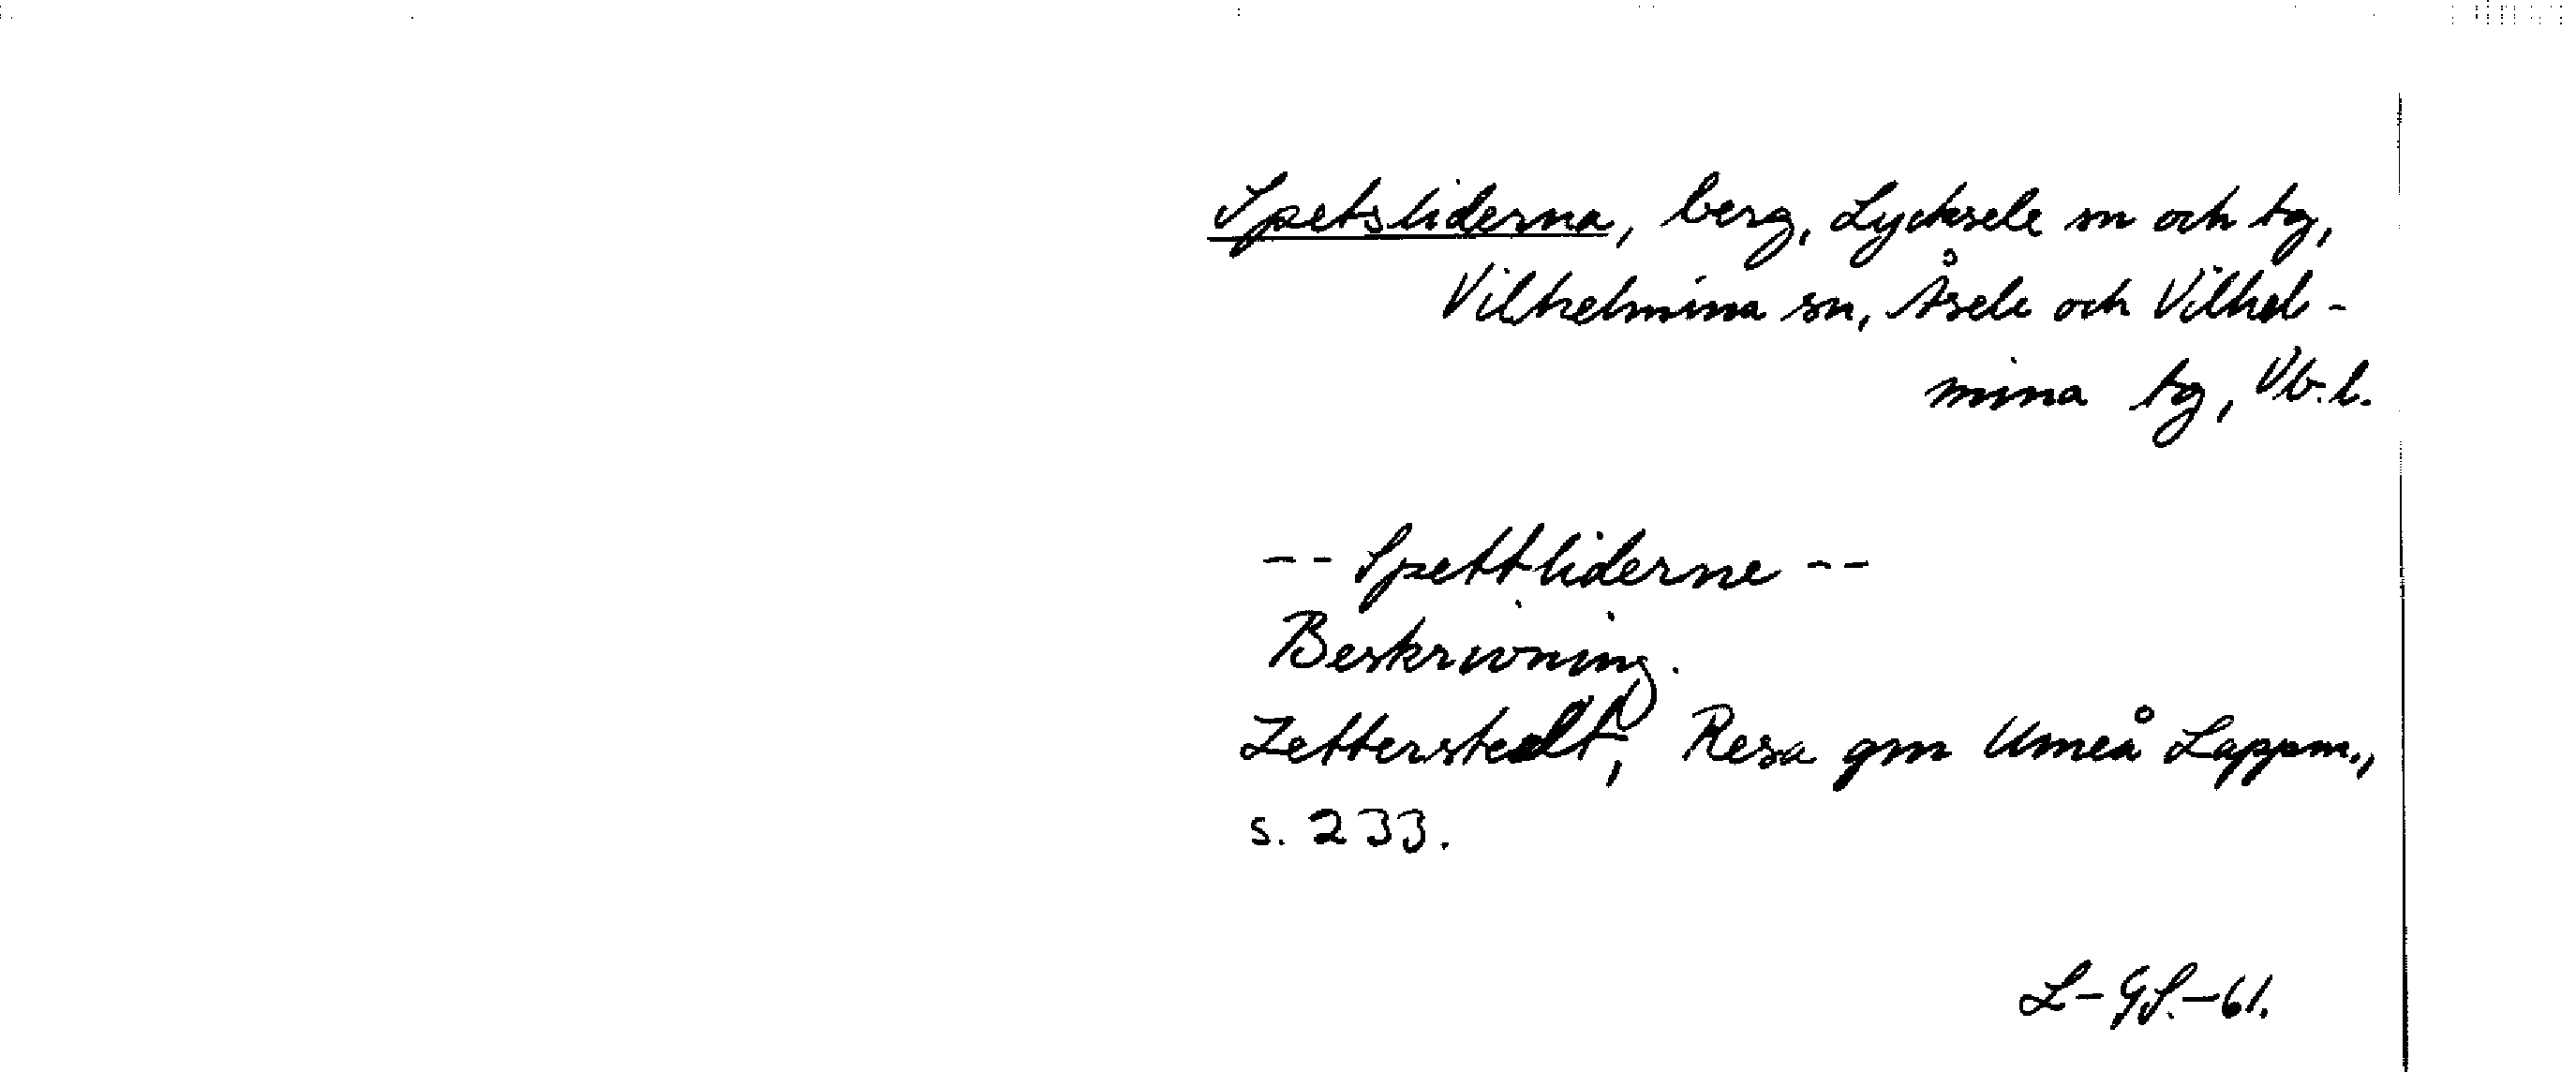 Spetsliderna, berg, Lycksele sn och tg,
Vilhelmina sn, Åsele och Vilhel-
mina tg, Vb.l.
-- Spettliderne --
Beskrivning.
Zetterstedt, Resa gm Umeå Lappm.,
s. 233.
L-GS.-61.